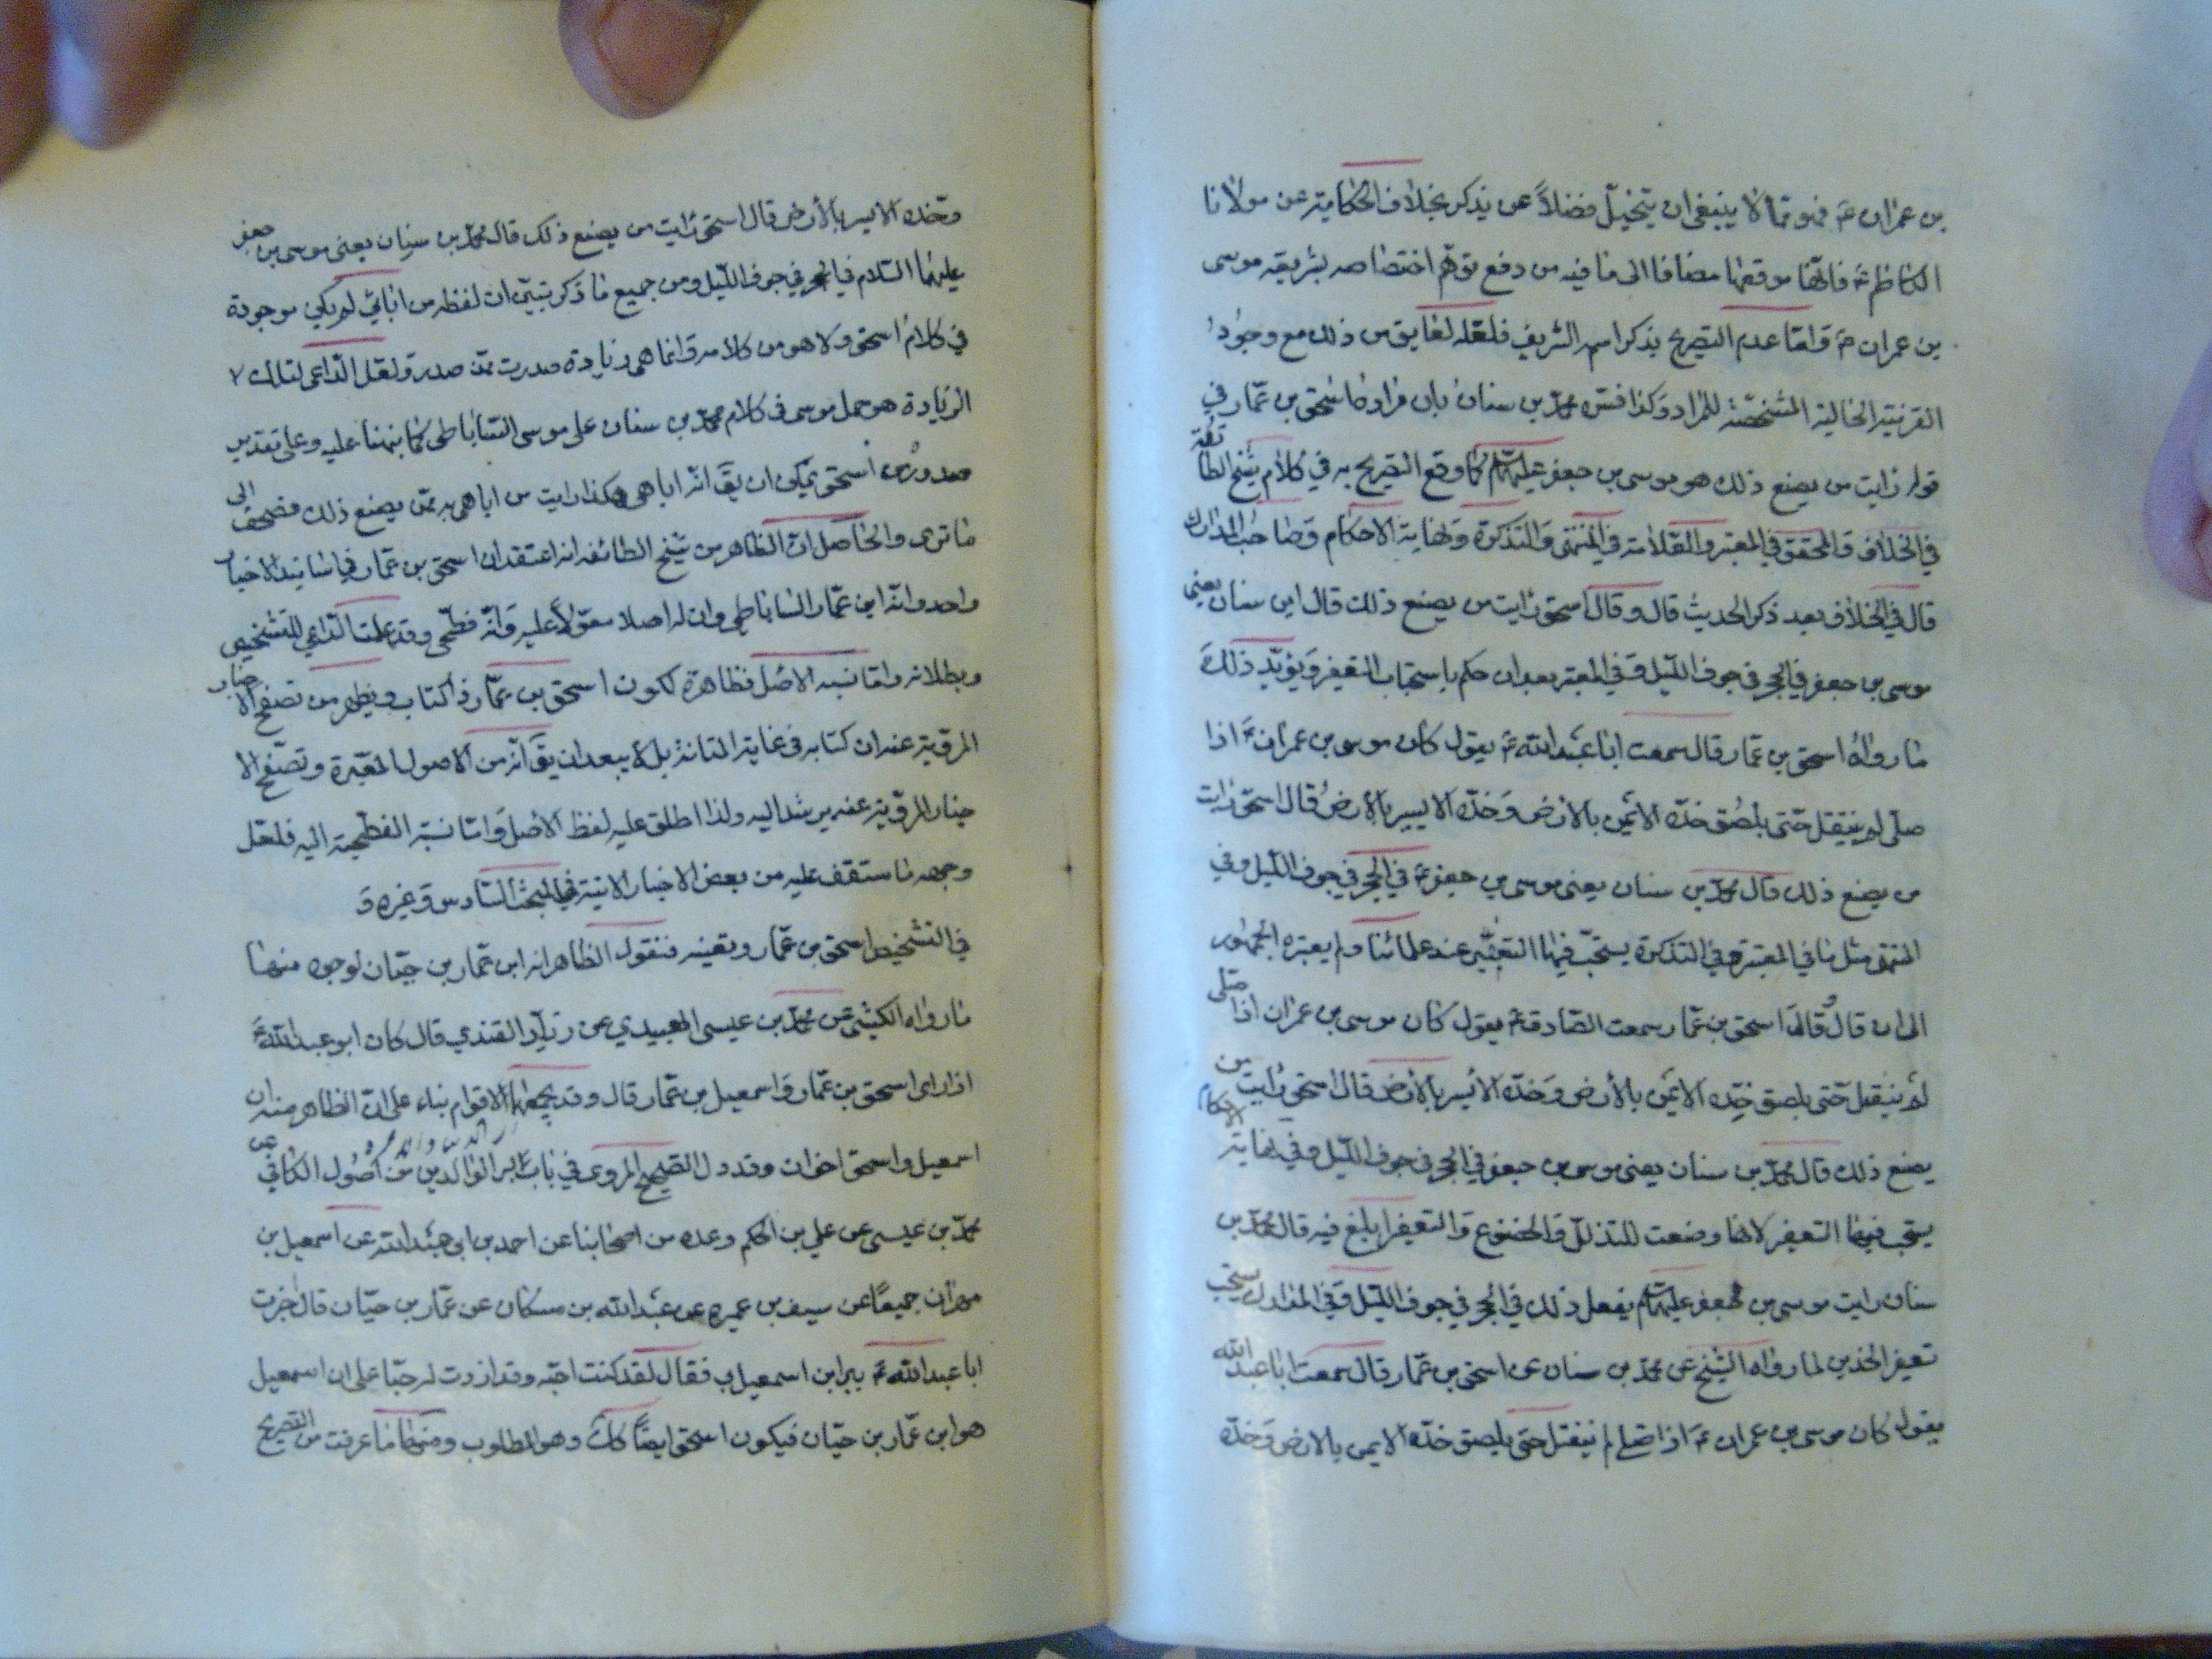 بن عمران ع فهو مما لا ينبغي ان يتخيل فضلاً عن يذكر بخلاف الحكاية عن مولانا
الكاظم ع فانها موقعها مضافا الى ما فيه من دفع توهم اختصاصه بشريعة موسى
بن عمران ع واما عدم التصريح بذكر اسمه الشريف فلعله لعايق من ذلك مع وجود
القرينة الحالية المشخصة للمراد وكذا فسره محمد بن سنان بان مراد اسحق بن عمار في
قوله رايت من يصنع ذلك هو موسى بن جعفر عليهما السلام كما وقع التصريح به في كلام شيخ الطائفة
في الخلاف والمحقق في المعتبر والعلامة في المنتهى والتذكرة ونهاية الاحكام وصاحب المدارك
قال في الخلاف بعد ذكر الحديث قال وقال اسحق رايت من يصنع ذلك قال ابن سنان يعني
موسى بن جعفر في الحجر في جوف الليل وفي المعتبر بعد ان حكم باستحباب التعفير ويؤيد ذلك
ما رواه اسحق بن عمار قال سمعت ابا عبد الله ع يقول كان موسى بن عمران ع اذا
صلى لم ينفتل حتى يلصق خده الايمن بالارض وخده الايسر بالارض قال اسحق رايت
من يصنع ذلك قال محمد بن سنان يعني موسى بن جعفر ع في الحجر في جوف الليل وفي
المنتهى مثل ما في المعتبر وفي التذكرة يستحب فيها التعفير عند علمائنا ولم يعتبره الجمهور
الى ان قال قال اسحق بن عمار سمعت الصادق ع يقول كان موسى بن عمران اذا صلى
لم ينفتل حتى يلصق خده الايمن بالارض وخده الايسر بالارض قال اسحق رايت من
يصنع ذلك قال محمد بن سنان يعني موسى بن جعفر في الحجر في جوف الليل وفي نهاية الاحكام
يستحب فيهما التعفير لانها وضعت للتذلل والخضوع والتعفير ابلغ فيه قال محمد بن
سنان رايت موسى بن جعفر عليهما السلام يفعل ذلك في الحجر في جوف الليل وفي المدارك يستحب
تعفير الخدين لما رواه الشيخ عن محمد بن سنان عن اسحق بن عمار قال سمعت ابا عبد الله
يقول كان موسى بن عمران ع اذا صلى لم ينفتل حتى يلصق خده الايمن بالارض وخده
وخده الايسر بالارض قال اسحق رايت من يصنع ذلك قال محمد بن سنان يعني موسى بن جعفر
عليهما السلام في الحجر في جوف الليل ومن جميع ما ذكر تبين ان لفظه من ابائي لم يكن موجودة
في كلام اسحق ولا هو من كلامه وانما هي زيادة صدرت ممن صدر ولعل الداعي لتلك
الزيادة هو حمل موسى في كلام محمد بن سنان على موسى الساباطي كما نبهنا عليه وعلى تقدير
صدوره من اسحق يمكن ان يق انه اباهي هكذا رايت من اباهي به ممن يصنع ذلك فصحف الى
ما ترى والحاصل ان الظاهر من شيخ الطائفه انه اعتقد ان اسحق بن عمار في اسانيد الاخبار
واحد وانه ابن عمار الساباطي وان له اصلا معولاً عليه وانه فطحي وقد علمت الداعي للتشخيص
وبطلانه واما نسبه الاصل فظاهرة لكون اسحق بن عمار ذا كتاب ويظهر من تصفح الاخبار
المروية عنه ان كتابه في غاية المتانة بل لا يبعد ان يق انه من الاصول المعتبرة وتصفح الا
خبار المروية عنه يرشد اليه ولذا اطلق عليه لفظ الاصل واما نسبة الفطحية اليه فلعل
وجهه ما ستقف عليه من بعض الاخبار الاتية في المبحث السادس وغيره و
في التشخيص اسحق بن عمار وتعينه فنقول الظاهر انه ابن عمار بن حيان لوجوه منها
ما رواه الكشي عن محمد بن عيسى العبيدي عن زياد القندي قال كان ابو عبد الله ع
اذا راى اسحق بن عمار واسمعيل بن عمار قال وقد يجمعهما الاقوام بناء على ان الظاهر منه ان
اسمعيل واسحق اخوان وقد دل الصحيح المروي في باب البر الوالدين من اصول الكافي عن
محمد بن عيسى عن علي بن الحكم وعده من اصحابنا عن احمد بن ابي عبد الله عن اسمعيل بن
مهران جميعًا عن سيف بن عميره عن عبد الله بن مسكان عن عمار بن حيان قال خبرت
ابا عبد الله ع ببر ابن اسمعيل بي فقال لقد كنت احبه وقد ازددت له حبّا على ان اسمعيل
هو ابن عمار بن حيان فيكون اسحق ايضًا كك وهو المطلوب ومنها ما عرفت من التصريح